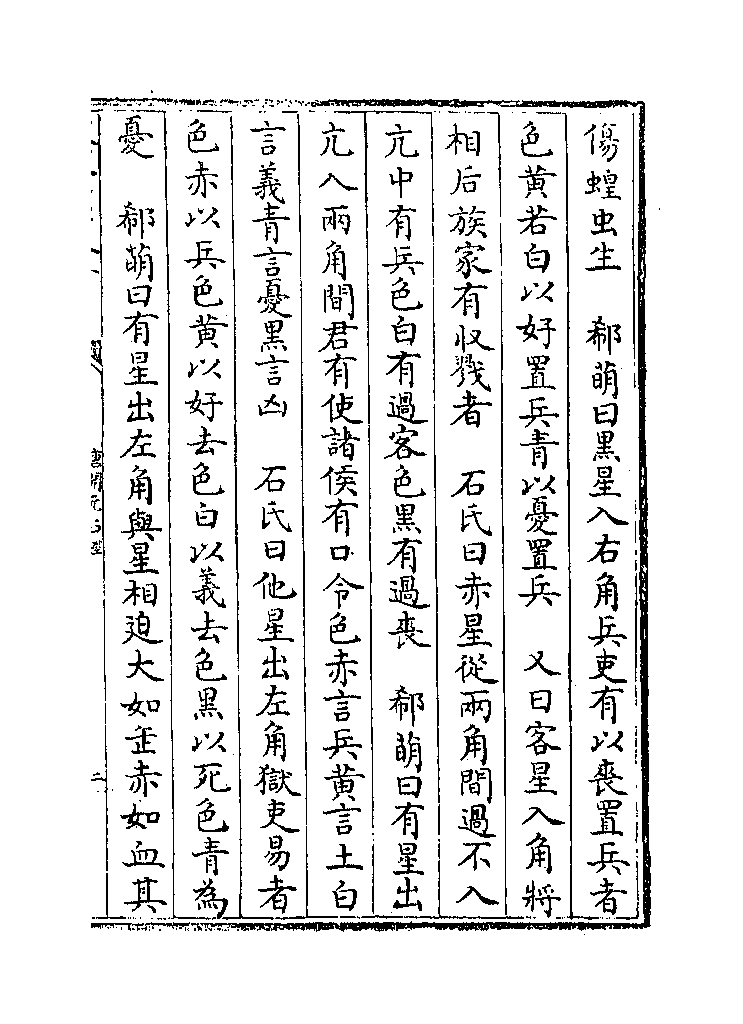 傷蝗虫生　郗萌曰黒星入右角兵吏有以喪置兵者
色黄若白以好置兵青以憂置兵　又曰客星入角將
相后族家有収戮者　石氏曰赤星從兩角間過不入
亢中有兵色白有過客色黒有過喪　郗萌曰有星出
亢入兩角間君有使諸侯有口令色赤言兵黄言土白
言義青言憂黒言凶　石氏曰他星出左角獄吏易者
色赤以兵色黄以好去色白以義去色黒以死色青為
憂　郗萌曰有星出左角與星相迫大如缶赤如血其
唐開元占經
二